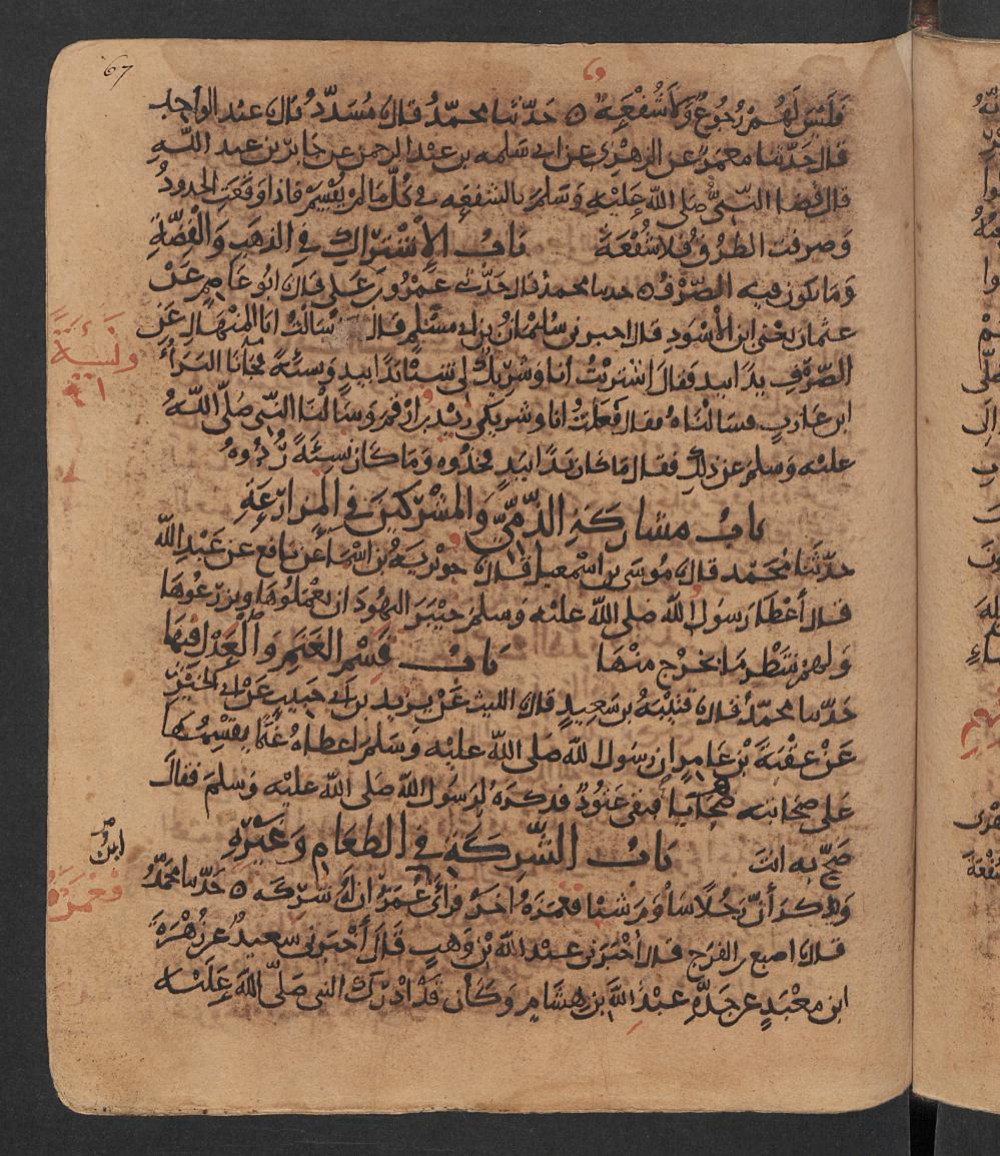 67
فَلَيْسَ لَهُمْ رُجُوعٌ وَلَا شُفْعَةٌ ه حَدّثنا محمّدُ قال مُسَدّدٌ قال عبْد الواحِد
قال حَدّثنا معمَرٌ عن الزهْرِي عن ابى سَلمه بن عبْد الرحمن عن جَابر بن عبد اللّه
قال قضا النّبىُّ صلى اللّه عَليْهِ وَسَلمَ بالشفعه فى كُلّ مَا لمْ يُقْسَمْ فاذا وَقَعَتِ الحدودُ
وَصرفت الطرُقُ فَلا شُفْعَةَ باب الاِشْتِرَاكِ في الذهَبِ وَالْفِضّةِ
وَمَا يَكون فيه الصّرْفُ ه حدثنا محمدٌ قال حَدّثنى عَمْرُو بن عَلي قال ابو عَاصِم عَنْ
عثمان يَعْنى ابن الْأَسْوَدِ قال اخبرنى سُليْمَانُ بن ابى مسْلمٍ قال سَالتُ ابا المِنْهالِ عَنِ
الصّرْفِ يدًا بيد فقال اشتريْتُ أنا وَشرِيكٌ لى شيئًا يَدًا بيدٍ وَنسئةً فَجَآنَا البَرَآءُ
ابن عَازبٍ فسَالْنَاهُ فقال فَعَلْتُ انا وشريكى زيْد بن ارْقَم وَسَالْنَا النّبى صَلى اللّهُ
عليْه وَسَلم عن ذلِكَ فقال مَا كان يَدًا بيَدٍ فخُذوه وَمَا كَان نَسِيئَةً رُدُّوهُ
باب مشاركَةِ الذّمِّيّ وَالمشرِكينَ في المزارَعَةِ
حدّثنا مُحَمّد قال مُوسَى بن اسْمعيل قال جوَيْريَةُ بن اسْمآءَ عن نافع عن عَبْدِ اللّه
قال أعْطَا رَسولُ اللّه صَلى اللّه عليْه وَسلمَ خيْبَرَ اليهُودَ ان يعْمَلُوهَا ويزرَعُوهَا
وَلهمْ شَطْرُ مَا يخرُج منهَا باب قَسْمِ الغَنَمِ وَالْعَدْلِ فيهَا
حَدّثنا محمّدٌ قال قتيْبَةُ بن سَعِيدٍ قال الليث عَنْ يزيد بن ابى حَبيبٍ عَنْ ابى الخيْرِ
عَنْ عقْبَةَ بْن عَامرٍ ان رَسُولَ اللّه صَلى اللّه عليْه وَسَلم اعطاهُ غَنَمًا يقسِمُهَا
عَلى صَحَابَتِه ضحَايَا فبقى عَتُودٌ فذكرَهُ لِرَسُول اللّه صَلى اللّه عليْه وَسلمَ فقال
ضَحِّ به انتَ باب الشّرِكَةِ في الطعَامِ وَغَيْرِهِ
وَيُذكَرُ أَنَّ رَجُلًا سَاوَمَ شيْئا فغمَزَهُ اخَرُ فرَأَى عُمَرُ انّ لَهُ شَرِكَه ه حَدّثنا محمّدٌ
قال اصبغ بن الفرَج قال أخبَرَنى عبْدُ اللّه بْن وَهبٍ قَالَ أَخْبَرَنى سَعِيدٌ عن زُهْرَةَ
ابن معْبَدٍ عن جَدّهِ عبْدِ اللّه بن هشَامٍ وَكَان قَدْ ادْرَكَ النبى صَلّى اللّهُ عَليْه
ونَسِيئَةً
ابنَ عُمر
فغمَزَهُ